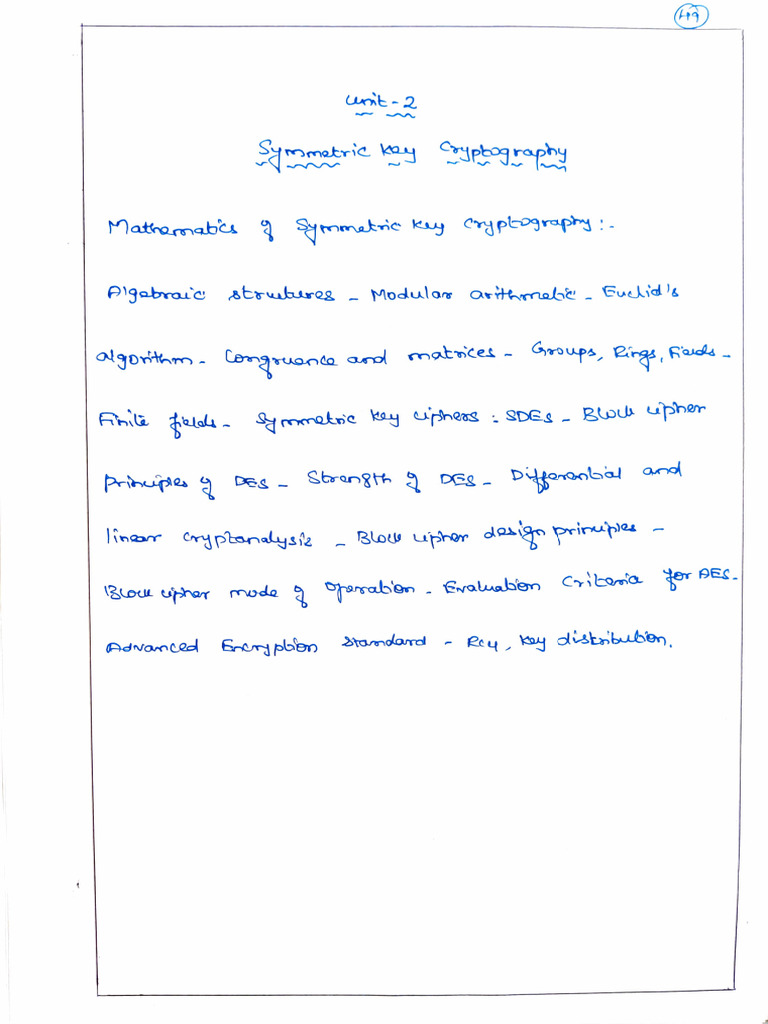 49
Unit - 2
Symmetric Key Cryptography
Mathematics of Symmetric Key Cryptography :-
Algebraic structures - Modular arithmetic - Euclid's
algorithm - Congruence and matrices - Groups, Rings, Fields -
Finite fields - Symmetric key ciphers : SDES - Block cipher
principles of DES - Strength of DES - Differential and
linear cryptanalysis - Block cipher design principles -
Block cipher mode of operation - Evaluation Criteria for AES -
Advanced Encryption Standard - RC4, Key distribution.